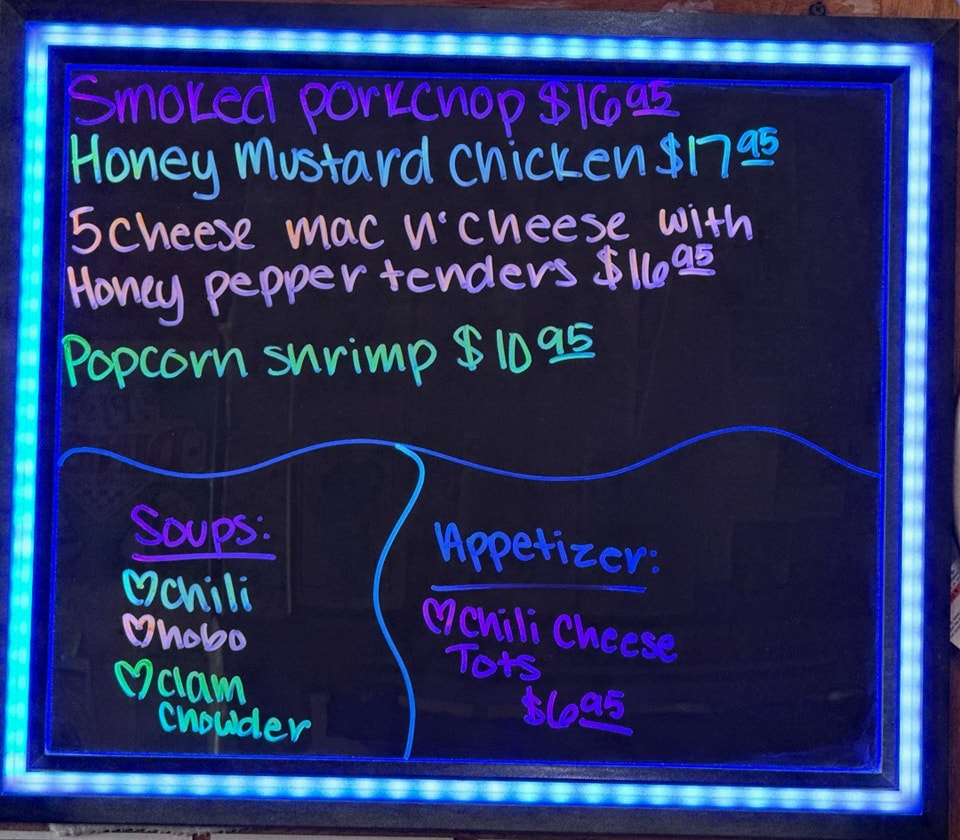 Smoked porkchop $16.95
Honey Mustard Chicken $17.95
5 cheese mac n' cheese with
Honey pepper tenders $16.95
Popcorn shrimp $10.95
Soups:
♡ chili
♡ hobo
♡ clam
chowder
Appetizer:
♡ Chili Cheese
Tots
$6.95